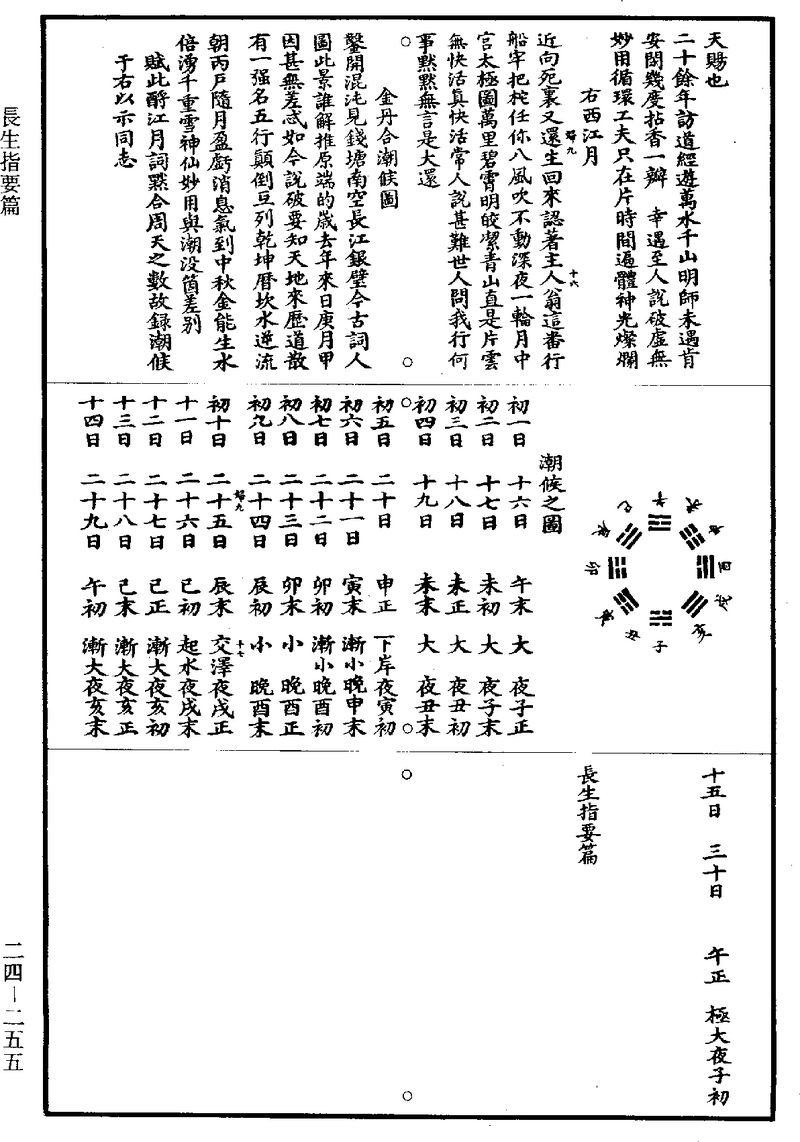 天賜也
二十餘年訪道經遊萬水千山明師未遇肯
安閑幾度拈香一瓣　幸遇至人說破虛無
妙用循環工夫只在片時間遍體神光燦爛
右西江月
近向死裏又還生回來認著主人翁這番行
船牢把柁任你八風吹不動深夜一輪月中
宮太極圖萬里碧霄明皎潔青山直是片雲
無快活真快活常人說甚難世人問我行何
事默默無言是大還
金丹合潮候圖
鑿開混沌見錢塘南空長江銀壁今古詞人
圖此景誰解推原端的歲去年來日庚月甲
因甚無差忒如今說破要知天地來歷道散
有一强名五行顛倒互列乾坤曆坎水逆流
朝丙戶隨月盈虧消息氣到中秋金能生水
倍湧千重雪神仙妙用與潮没箇差別
賦此酹江月詞黙合周天之數故録潮候
于右以示同志
潮候之圖
初一日　十六日　午末　大　夜子正
初二日　十七日　未初　大　夜子末
初三日　十八日　未正　大　夜丑初
初四日　十九日　未末　大　夜丑末
初五日　二十日　申正　下岸夜寅初
初六日　二十一日　寅末　漸小晚申末
初七日　二十二日　卯初　漸小晚酉初
初八日　二十三日　卯末　小　晚酉正
初九日　二十四日　辰初　小　晚酉末
初十日　二十五日　辰末　交澤夜戌正
十一日　二十六日　巳初　起水夜戌末
十二日　二十七日　巳正　漸大夜亥初
十三日　二十八日　巳末　漸大夜亥正
十四日　二十九日　午初　漸大夜亥末
十五日　三十日　午正　極大夜子初
長生指要篇
長生指要篇
二四－二五五